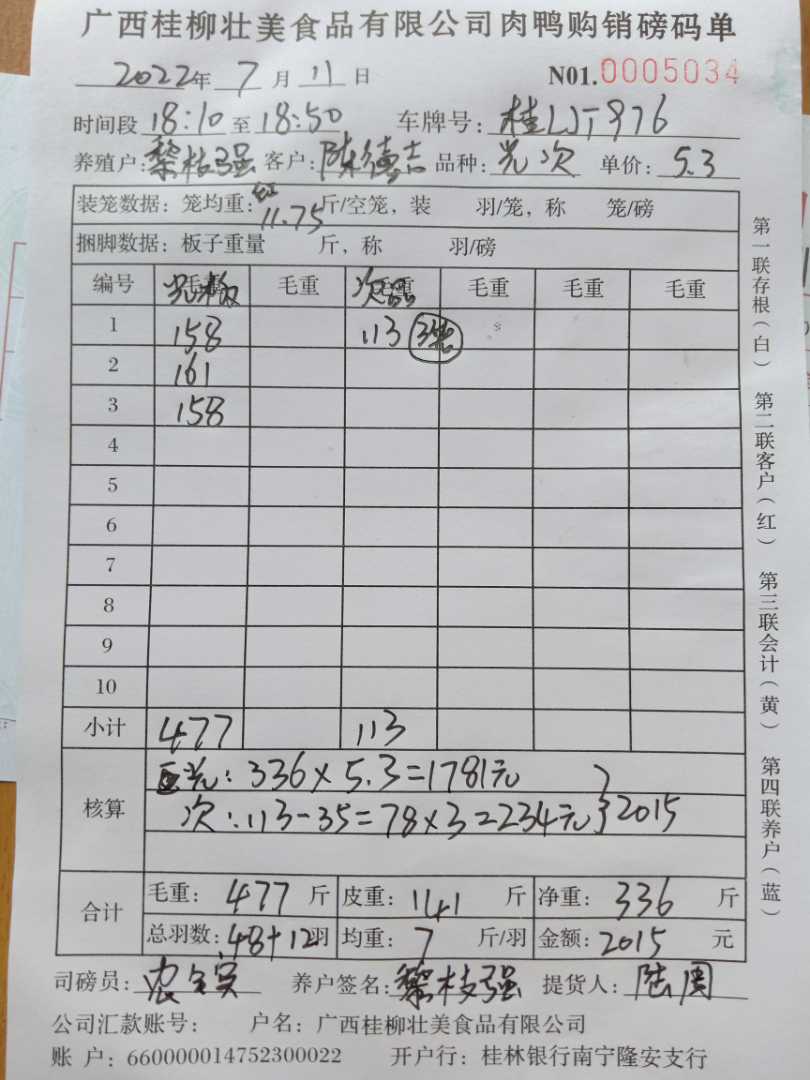 广西桂柳壮美食品有限公司肉鸭购销磅码单
2022年 7 月 11 日 N01.0005034
时间段 18:10 至 18:50 车牌号: 桂LJT976
养殖户: 黎枝强 客户: 陈德志 品种: 光次 单价: 5.3
装笼数据: 笼均重: 红 11.75 斤/空笼, 装 羽/笼, 称 笼/磅
捆脚数据: 板子重量 斤, 称 羽/磅
编号 毛重 毛重 次品 毛重 毛重 毛重
1 158 113 35
2 161
3 158
4
5
6
7
8
9
10
小计 477 113
核算 光: 336×5.3=1781元
次: 113-35=78×3=234元 } 2015
合计 毛重: 477 斤 皮重: 141 斤 净重: 336 斤
总羽数: 48+12羽 均重: 7 斤/羽 金额: 2015 元
司磅员: 养户签名: 黎枝强 提货人: 陆周
公司汇款账号: 户名: 广西桂柳壮美食品有限公司
账 户: 660000014752300022 开户行: 桂林银行南宁隆安支行
第一联存根(白) 第二联客户(红) 第三联会计(黄) 第四联养户(蓝)